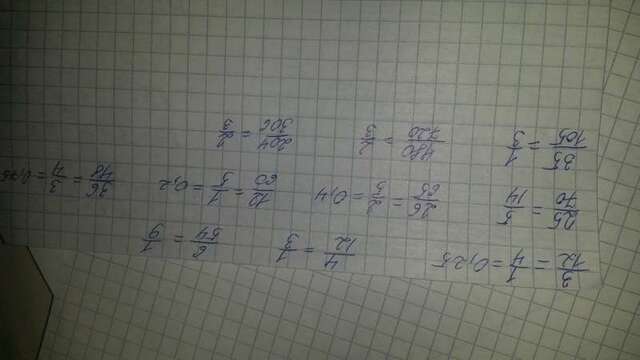 3/12 = 1/4 = 0,25   4/12 = 1/3   6/54 = 1/9
25/70 = 5/14   26/65 = 2/5 = 0,4   12/60 = 1/5 = 0,2   36/48 = 3/4 = 0,75
35/105 = 1/3   480/720 = 2/3   204/306 = 2/3